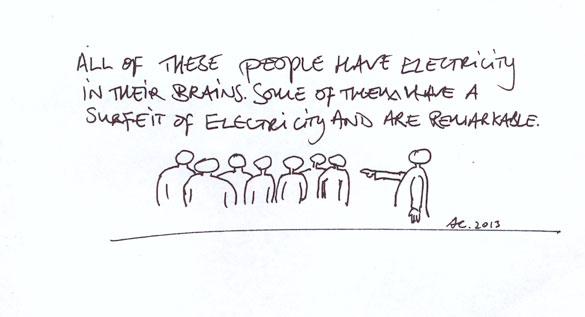 ALL OF THESE PEOPLE HAVE ELECTRICITY
IN THEIR BRAINS. SOME OF THEM HAVE A
SURFEIT OF ELECTRICITY AND ARE REMARKABLE.
AC. 2013